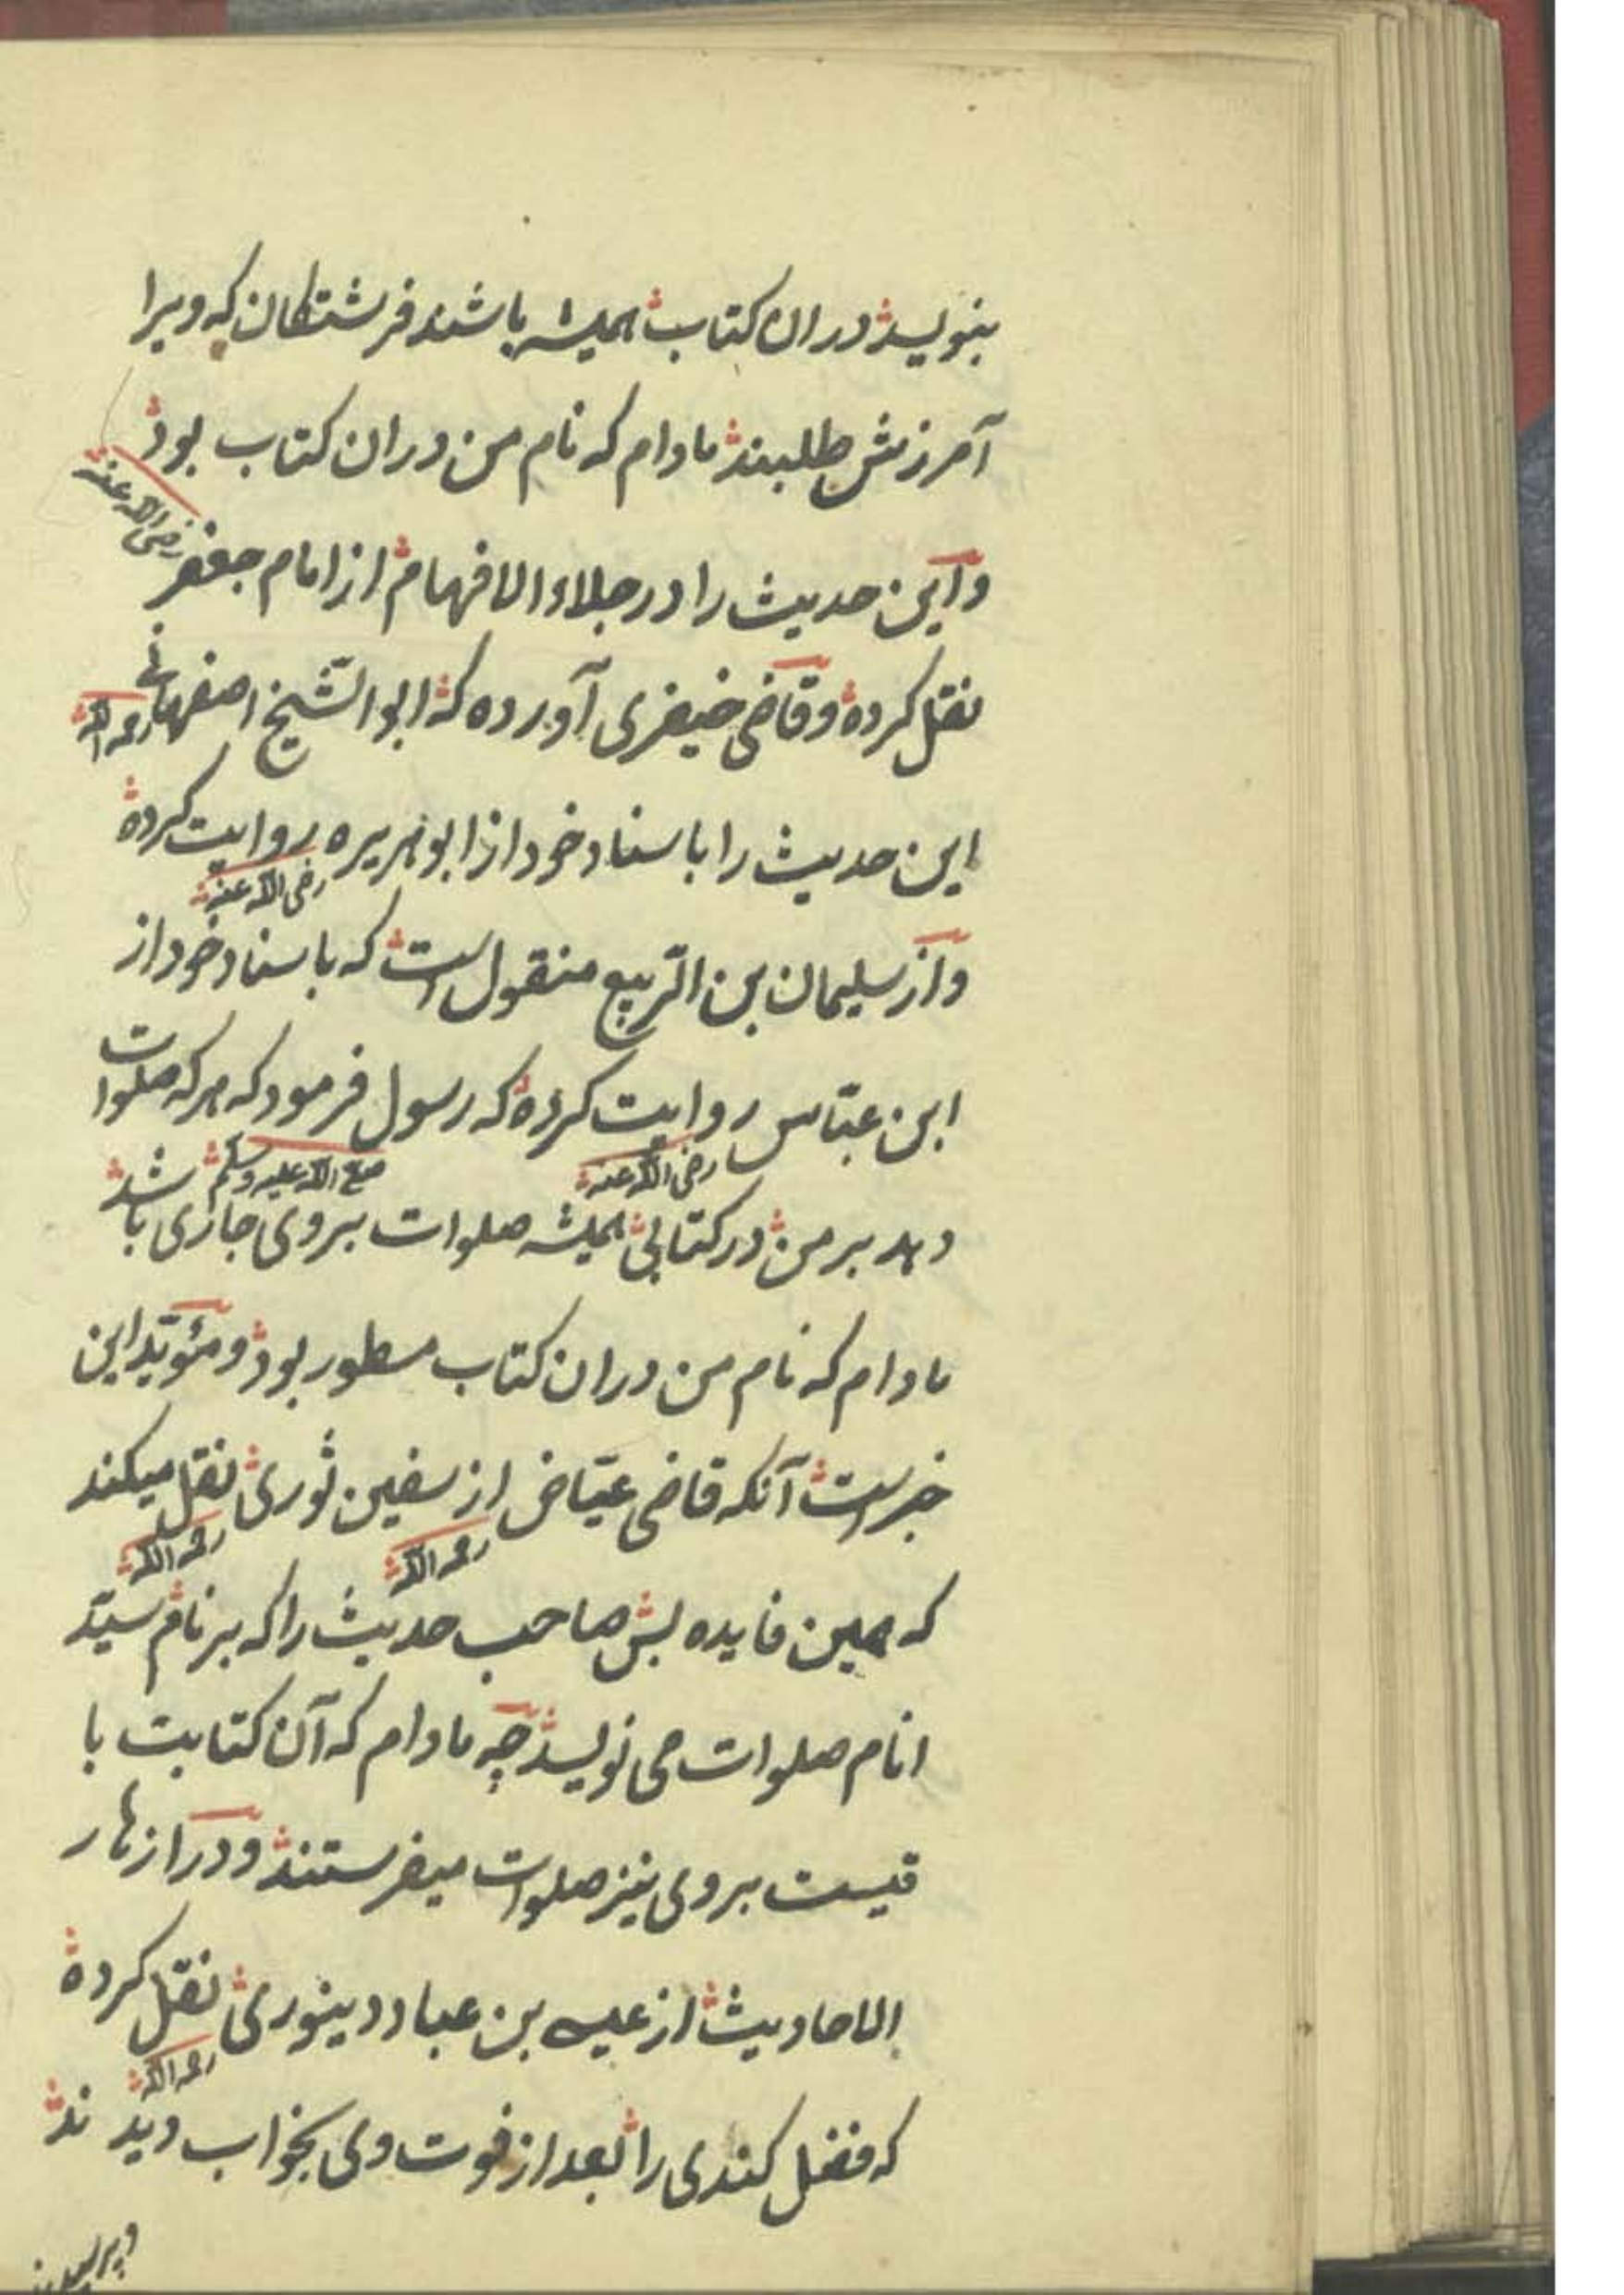 بنویسد دران کتاب همیشه باشند فرشتگان که ویرا
آمرزش طلبند مادام که نام من دران کتاب بود
واین حدیث را در جلاء الافهام از امام جعفر رضی الله عنه
نقل کرده وقاضی خیضری آورده که ابو الشیخ اصفهانی رحمه الله
این حدیث را باسناد خود از ابو هریره روایت کرده
رضی الله عنه
واز سلیمان بن الربیع منقول است که باسناد خود از
ابن عباس روایت کرده که رسول فرمود که هر که صلوات
رضی الله عنه صلی الله علیه وسلم
دهد بر من در کتابی همیشه صلوات بروی جاری باشد
مادام که نام من دران کتاب مسطور بود ومؤید این
خبر است آنکه قاضی عیاض از سفین ثوری نقل میکند
رحمه الله رحمه الله
که همین فایده بس صاحب حدیث را که بر نام سید
انام صلوات می نویسد چه مادام که آن کتابت با
قیست بروی نیز صلوات میفرستند ودر ازهار
الاحادیث از عیسی بن عباد دینوری نقل کرده
رحمه الله
که فضل کندی را بعد از فوت وی بخواب دیدند